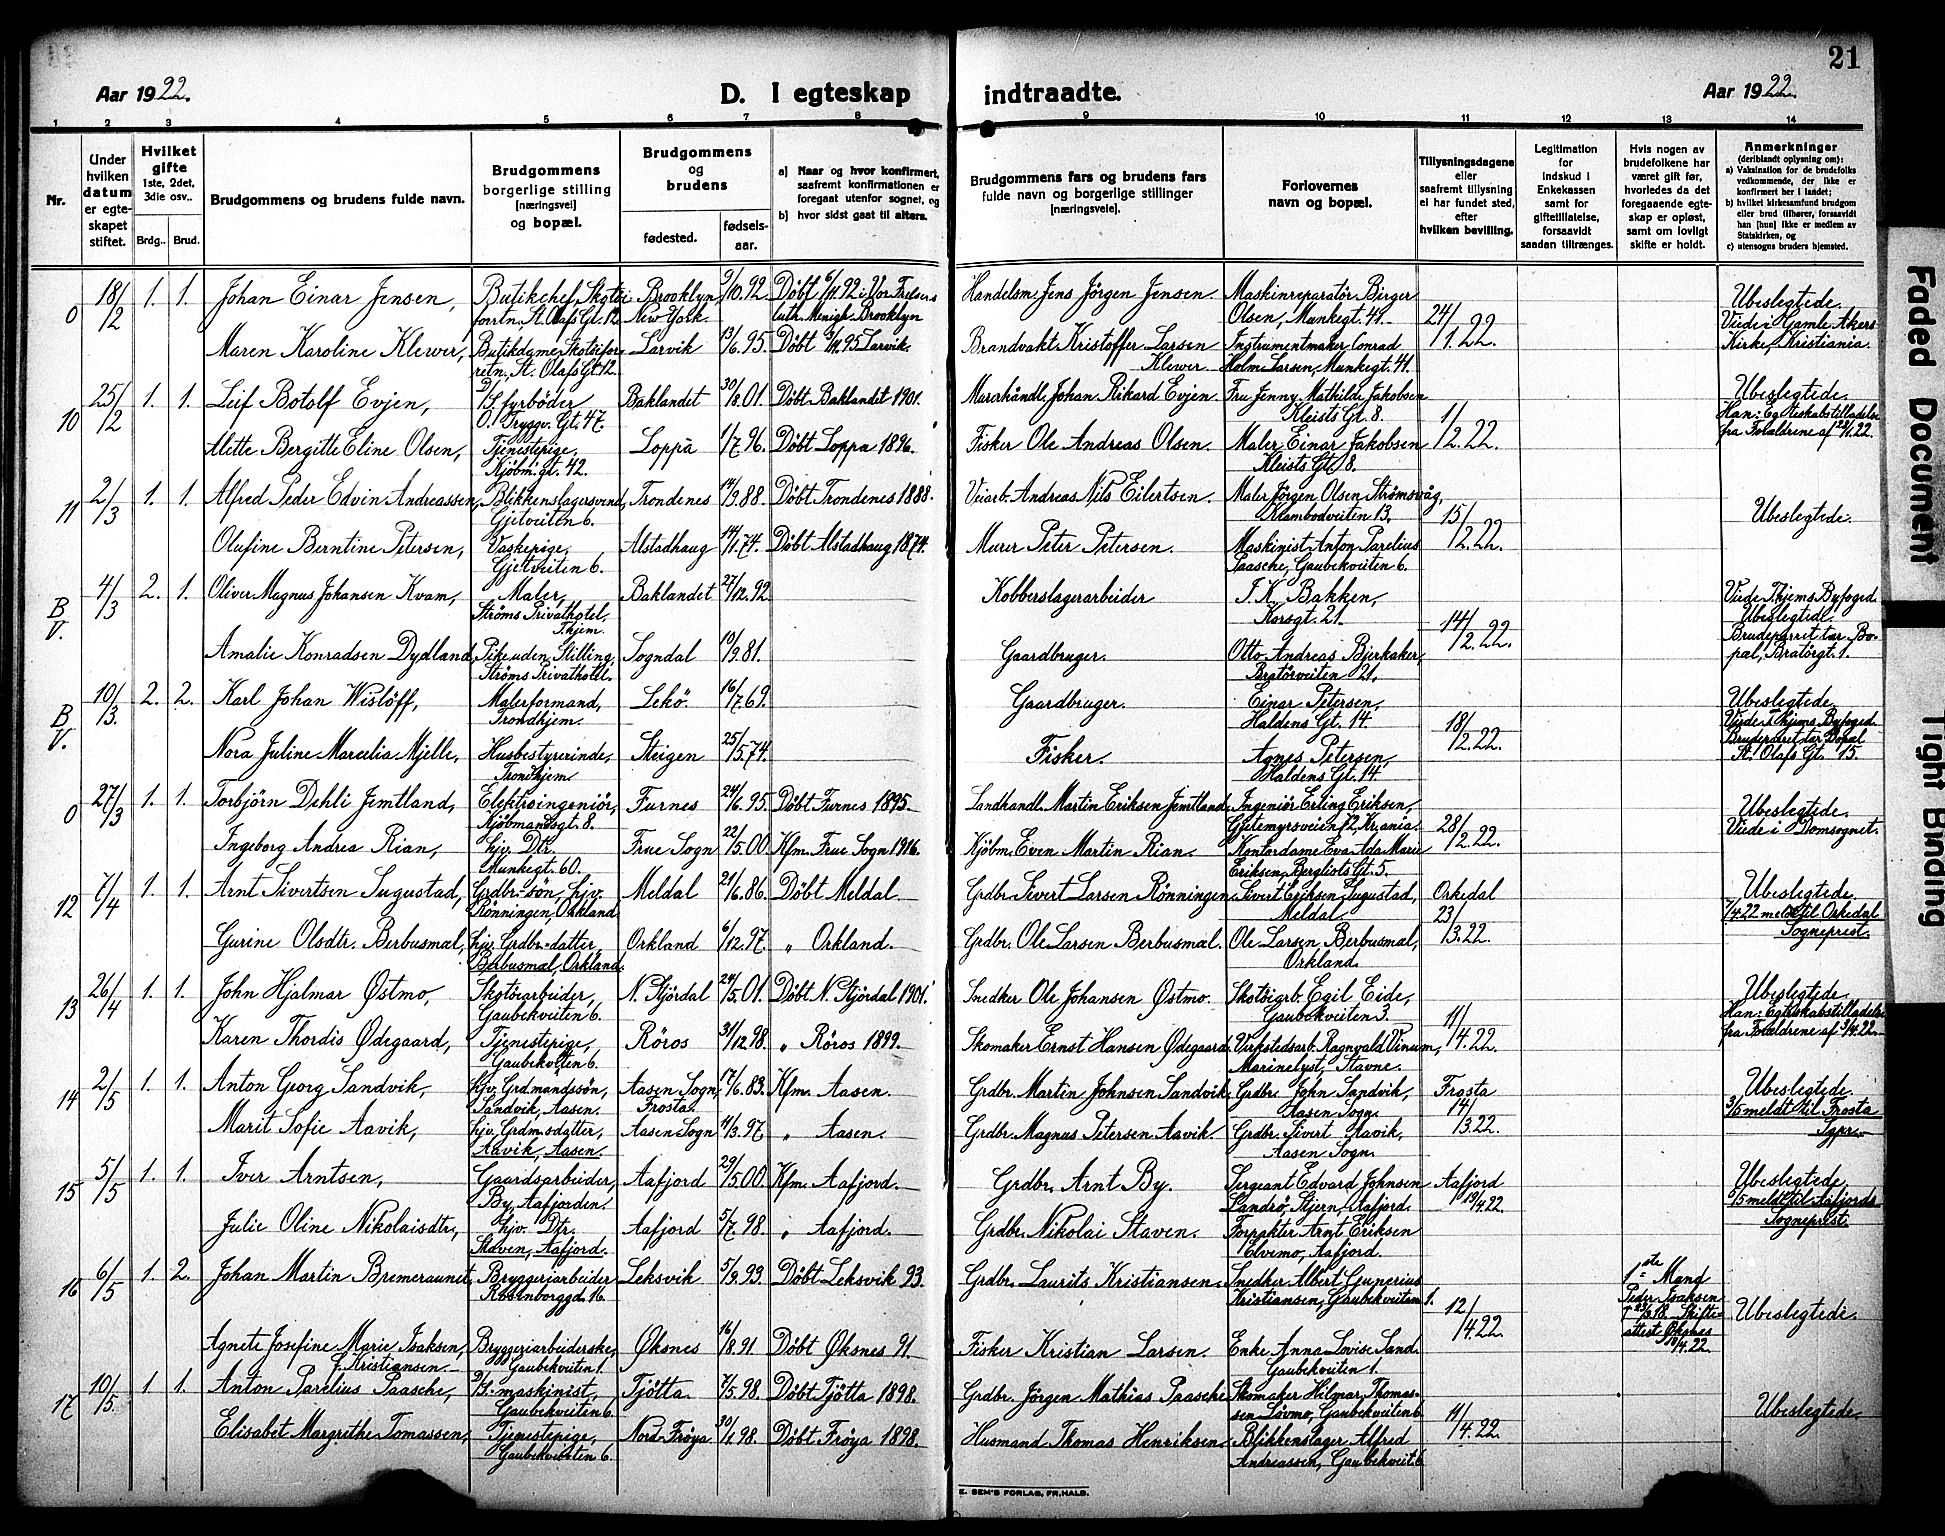 21
Aar 1922.
D. I egteskap
indtraadte.
Aar 1922.
1 2 3 4 5 6 7 8 9 10 11 12 13 14
Nr.
Under hvilken datum er egteskapet stiftet.
Hvilket gifte 1ste, 2det, 3die osv..
Brdg.. Brud.
Brudgommens og brudens fulde navn.
Brudgommens borgerlige stilling [næringsvei] og bopæl.
Brudgommens og brudens
fødested.
fødsels-aar.
a) Naar og hvor konfirmert, saafremt konfirmationen er foregaat utenfor sognet, og
b) hvor sidst gaat til alters.
Brudgommens fars og brudens fars fulde navn og borgerlige stillinger [næringsveie].
Forlovernes navn og bopæl.
Tillysningsdagene eller saafremt tillysning ei har fundet sted, efter hvilken bevilling.
Legitimation for indskud i Enkekassen samt for giftetillatelse, forsaavidt saadan tiltrænges.
Hvis nogen av brudefolkene har været gift før, hvorledes da det foregaaende egteskap er opløst, samt om lovligt skifte er holdt.
Anmerkninger (deriblandt oplysning om):
a) Vaksination for de brudefolks vedkommende, der ikke er konfirmert her i landet;
b) hvilket kirkesamfund brudgom eller brud tilhører, forsaavidt han [hun] ikke er medlem av Statskirken, og
c) utensogns bruders hjemsted.
0 18/2 1. 1. Johan Einar Jensen, Butikchef, Skotøiforrtn, St. Olafs Gt. 12 Brooklyn, New York. 9/10.92. Döbt 6/11.92 i Vor Frelsers luth. Menigh. Brooklyn Handelsm. Jens Jörgen Jensen. Maskinreparatør Birger Olsen, Munkegt. 41. 24/1.22. Ubeslegtede. Viede i Gamle Akers Kirke, Kristiania.
Maren Karoline Klewer, Butikdame, Skotöiforretn, St. Olafs Gt. 12. Larvik 13/6.95. Döbt 3/11.95 Larvik. Brandvakt Kristoffer Larsen Klewer Instrumentmaker Conrad Holm Larsen, Munkegt. 41.
10 25/2 1. 1. Leif Botolf Evjen, D/S. fyrböder O. Tryggv. Gt. 47. Baklandet 30/8.01. Döbt Baklandet 1901. Marchándl. Johan Rikard Evjen Fru Jenny Mathilde Jakobsen Kleists Gt. 8. 1/2.22. Ubeslegtede. Han: Egteskabstilladelse fra Forældrene af 23/1.22.
Alette Bergitte Eline Olsen, Tjenestepige, Kjöbm.gt. 42. Loppa 1/7.96. Döbt Loppa 1896. Fisker Ole Andreas Olsen. Maler Einar Jakobsen Kleists Gt. 8.
11 2/3 1. 1. Alfred Peder Edvin Andreassen, Blikkenslagersvend, Gjetveiten 6. Trondenes 14/9.88. Döbt Trondenes 1888. Veiarb. Andreas Nils Eilertsen. Maler Jörgen Olsen Strömsvåg, Klambodveiten 13. 15/2.22. Ubeslegtede.
Olufine Berntine Petersen, Vaskepige, Gjetveiten 6. Alstadhaug 14/1.74. Döbt Alstadhaug 1874. Murer Peter Petersen. Maskinist Anton Parelius Paasche, Gaubekveiten 6.
B.V. 4/3 2. 1. Oliver Magnus Johansen Kvam, Maler, Ströms Privathotel, Thjem. Baklandet 27/12.92 Kobberslagerarbeider T. K. Bakken, Korsgt. 21. 14/2.22. Viede Thjems Byfoged. Ubeslegtede. Brudeparret tar Bopæl, Bratörgt. 1.
Amalie Konradsen Dydland, Pike uden Stilling, Ströms Privathotel. Sogndal 10/9.81. Gaardbruger. Otto Andreas Bjerkaker, Bratörveiten 21.
B.V. 10/3. 2. 2. Karl Johan Wislöff, Malerformand, Trondhjem. Lekö. 16/7.69. Gaardbruger. Einar Petersen, Haldens Gt. 14. 18/2.22. Ubeslegtede. Viede Thjems Byfoged. Brudeparret tar Bopæl St. Olafs Gt. 15.
Nora Juline Marcelia Mjelle, Husbestyrerinde, Trondhjem. Steigen 25/5.74. Fisker. Agnes Petersen, Haldens Gt. 14
0 27/3 1. 1. Torbjörn Dehli Jemtland, Elektroingeniör, Kjöbmandsgt. 8. Furnes 24/6.95. Döbt Furnes 1895. Landhandl. Martin Eriksen Jemtland. Ingeniör Erling Eriksen, Gjetemyrsveien 12, Kr.ania. 28/2.22. Ubeslegtede. Viede i Domsognet.
Ingeborg Andrea Rian, hjv. Dtr. Munkegt. 60. Frue Sogn 22/5.00 Kfm. Frue Sogn 1916. Kjöbm. Even Martin Rian. Kontordame Eva Ada Marie Eriksen, Bergliots Gt. 5.
12 7/4 1. 1. Arnt Sivertsen Sugustad, Grdbr.-sön, hjv. Rönningen, Orkland Meldal 21/6.86. Döbt Meldal. Grdbr. Sivert Larsen Rönningen. Sivert Eriksen Sugustad, Meldal. Orkedal 23/3.22. Ubeslegtede. 7/4.22 meldt til Orkedal Sogneprest.
Gurine Olsdtr. Berbusmal, hjv. Grdbr.-datter, Berbusmal, Orkland. Orkland 6/12.97. „ Orkland. Grdbr. Ole Larsen Berbusmal. Ole Larsen Berbusmal, Orkland.
13 26/4 1. 1. John Hjalmar Østmo, Skotöiarbeider, Gaubekveiten 6. N. Stjördal 24/5.01. Döbt N. Stjördal 1901. Snedker Ole Johansen Østmo. Skotöiarb. Egil Eide, Gaubekveiten 3. 11/4.22. Ubeslegtede. Han: Egteskabstilladelse fra Forældrene af 3/4.22.
Karen Thordis Ødegaard, Tjenestepige, Gaubekveiten 6. Röros 31/12.98. „ Röros 1899. Skomaker Ernst Hansen Ødegaard. Verkstedsarb. Ragnvald Vinum, Marinelyst, Stavne.
14 2/5 1. 1. Anton Georg Sandvik, hjv. Grdmandssön, Sandvik, Aasen. Aasen Sogn, Frosta. 17/6.83. Kfm. Aasen. Grdbr. Martin Johnsen Sandvik. Grdbr. John Sandvik, Aasen Sogn. Frosta 14/3.22. Ubeslegtede. 3/5 meldt til Frosta Sgpr.
Marit Sofie Aavik, hjv. Grdm.sdatter, Aavik, Aasen. Aasen Sogn 11/3.97 „ Aasen. Grdbr. Magnus Petersen Aavik. Grdbr. Sivert Aavik, Aasen Sogn.
15 5/5 1. 1. Iver Arntsen, Gaardsarbeider, By, Aafjorden. Aafjord 29/5.00 Kfm. Aafjord. Grdbr. Arnt By. Sergeant Edvard Johnsen Landrö, Stjern, Aafjord. Aafjord 19/4.22. Ubeslegtede. /5 meldt til Aafjords Sogneprest.
Julie Oline Nikolaisdtr, hjv. Dtr. Staven, Aafjord. Aafjord 5/7.98. „ Aafjord. Grdbr. Nikolai Staven. Forpakter Arnt Eriksen Elvemo, Aafjord.
16 6/5 1. 2. Johan Martin Bremeraunet, Bryggeriarbeider Rosenborggd. 16. Leksvik 5/9.93. Döbt Leksvik 93. Grdbr. Laurits Kristiansen. Snedker Albert Guperius Kristiansen, Gaubekveiten 1. 12/4.22. 1ste Mand Peder Isaksen † 23/3.18. Skifteattest Øksnes 18/4.22 Ubeslegtede.
Agnete Josefine Marie Isaksen, f. Kristiansen. Bryggeriarbeiderske, Gaubekveiten 1. Øksnes 16/8.91 Döbt Øksnes 91. Fisker Kristian Larsen. Enke Anna Lovise Sand. Gaubekveiten 1.
17 10/5 1 1. Anton Parelius Paasche, D/S.-maskinist, Gaubekveiten 6. Tjötta. 7/5.98. Döbt Tjötta 1898. Grdbr. Jörgen Mathias Paasche. Skomaker Hilmar Thomassen Lövmo, Gaubekveiten 6 11/4.22. Ubeslegtede.
Elisabet Margrethe Tomassen, Tjenestepige, Gaubekveiten 6. Nord-Fröya 30/1.98. Döbt Fröya 1898. Husmand Thomas Henriksen. Blikkenslager Alfred Andreassen, Gaubekveit. 6
E. SEM'S FORLAG, FR.HALD.
Faded Document
Tight Binding